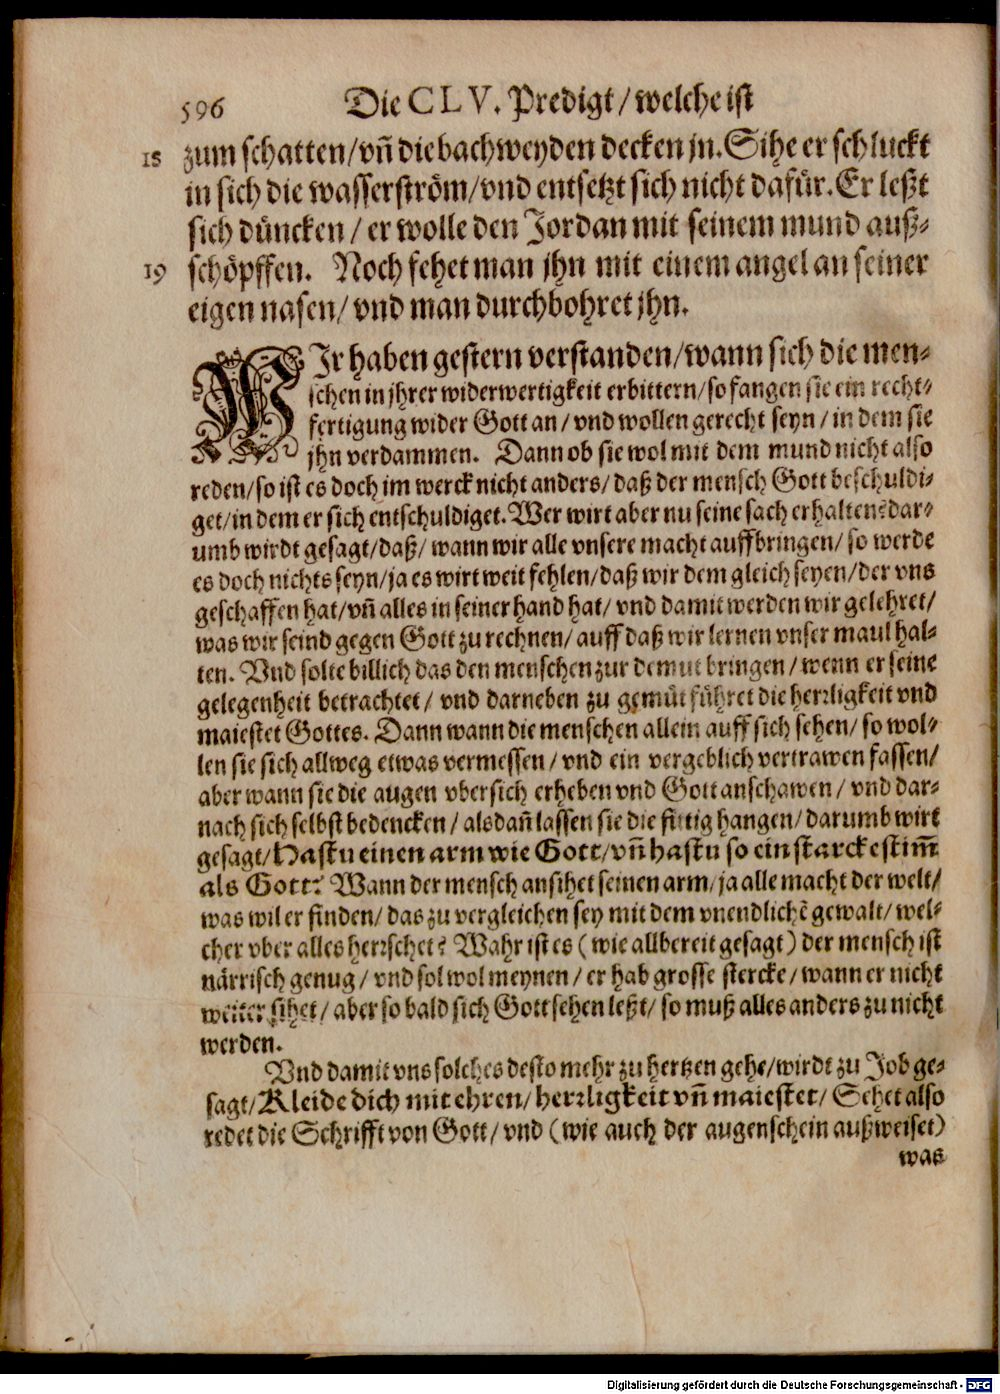 596 Die CLV. Predigt/welche ist
15 zum schatten/vñ die bachweyden decken jn. Sihe er schluckt
in sich die wasserström/vnd entsetzt sich nicht dafür. Er leßt
sich düncken/er wolle den Jordan mit seinem mund auß-
19 schöpffen. Noch fehet man jhn mit einem angel an seiner
eigen nasen/vnd man durchbohret jhn.
WIr haben gestern verstanden/wann sich die men-
schen in jhrer widerwertigkeit erbittern/so fangen sie ein recht-
fertigung wider Gott an/vnd wollen gerecht seyn/in dem sie
jhn verdammen. Dann ob sie wol mit dem mund nicht also
reden/so ist es doch im werck nicht anders/daß der mensch Gott beschuldi-
get/in dem er sich entschuldiget. Wer wirt aber nu seine sach erhalten? dar-
umb wirdt gesagt/daß/wann wir alle vnsere macht auffbringen/so werde
es doch nichts seyn/ja es wirt weit fehlen/daß wir dem gleich seyen/der vns
geschaffen hat/vñ alles in seiner hand hat/vnd damit werden wir gelehret/
was wir seind gegen Gott zu rechnen/auff daß wir lernen vnser maul hal-
ten. Vnd solte billich das den menschen zur demut bringen/wenn er seine
gelegenheit betrachtet/vnd darneben zu gemüt führet die herrligkeit vnd
maiestet Gottes. Dann wann die menschen allein auff sich sehen/so wol-
len sie sich allweg etwas vermessen/vnd ein vergeblich vertrawen fassen/
aber wann sie die augen vbersich erheben vnd Gott anschawen/vnd dar-
nach sich selbst bedencken/alsdañ lassen sie die fittig hangen/darumb wirt
gesagt/Hastu einen arm wie Gott/vñ hastu so ein starcke stim̃
als Gott? Wann der mensch ansihet seinen arm/ja alle macht der welt/
was wil er finden/das zu vergleichen sey mit dem vnendlichẽ gewalt/wel-
cher vber alles herrschet? Wahr ist es (wie allbereit gesagt) der mensch ist
närrisch genug/vnd sol wol meynen/er hab grosse stercke/wann er nicht
weiter sihet/aber so bald sich Gott sehen leßt/so muß alles anders zu nicht
werden.
Vnd damit vns solches desto mehr zu hertzen gehe/wirdt zu Job ge-
sagt/Kleide dich mit ehren/herrligkeit vñ maiestet/Sehet also
redet die Schrifft von Gott/vnd (wie auch der augenschein außweiset)
was
Digitalisierung gefördert durch die Deutsche Forschungsgemeinschaft - DFG